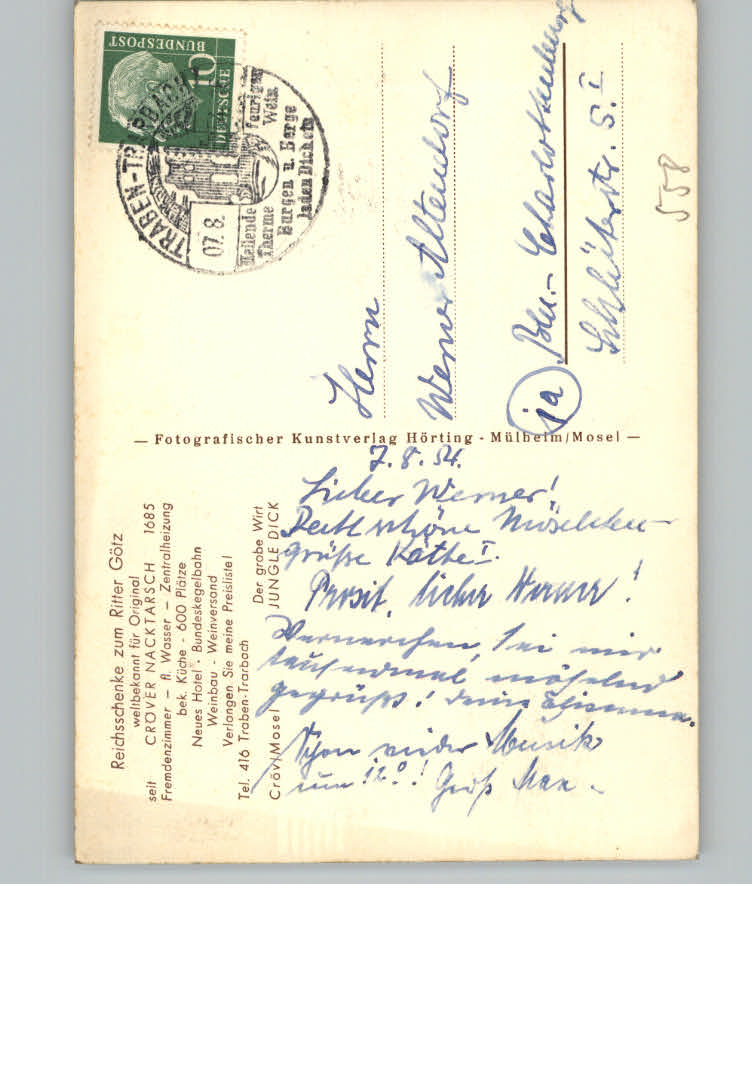 Reichsschenke zum Ritter Götz
weltbekannt für Original
seit CRÖVER NACKTARSCH 1685
Fremdenzimmer — fl. Wasser — Zentralheizung
bek. Küche - 600 Plätze
Neues Hotel · Bundeskegelbahn
Weinbau - Weinversand
Verlangen Sie meine Preisliste!
Tel. 416 Traben-Trarbach
Der grobe Wirt
Cröv/Mosel JUNGLE DICK
7.8.54.
Lieber Werner!
Recht schöne Möselchen-
grüße Käthe I.
Prosit, lieber Werner!
Wernerchen, sei mir
tausendmal möselnd
gegrüßt! Deine
Schon wieder Musik
um 12°! Gruß Max -
— Fotografischer Kunstverlag Hörting - Mülheim/Mosel —
DEUTSCHE
BUNDESPOST
10
TRABEN-TRARBACH
07.8.
Heilende
Therme
feuriger
Wein
Burgen u. Berge
laden Dich ein
Herrn
Werner Altendorf
ja Bln.- Charlottenburg
Schlüterstr. 5. I
558